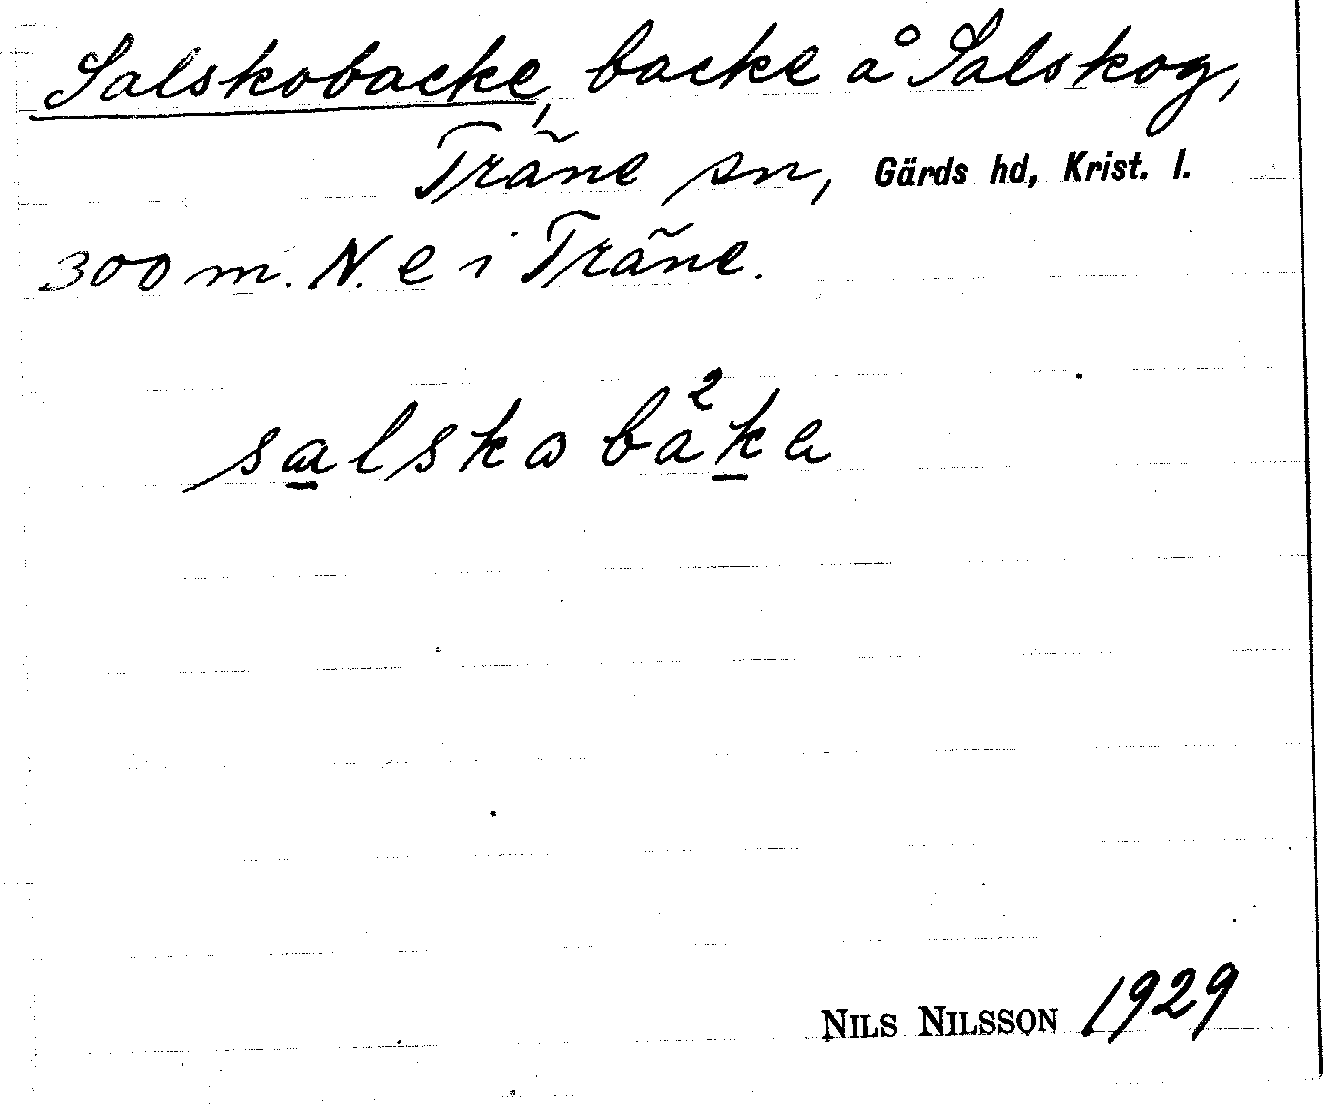 Salskobacke, backe å Salskog,
Träne sn, Gärds hd, Krist. l.
300 m. N. e i Träne.
salskoba²ka
NILS NILSSON 1929